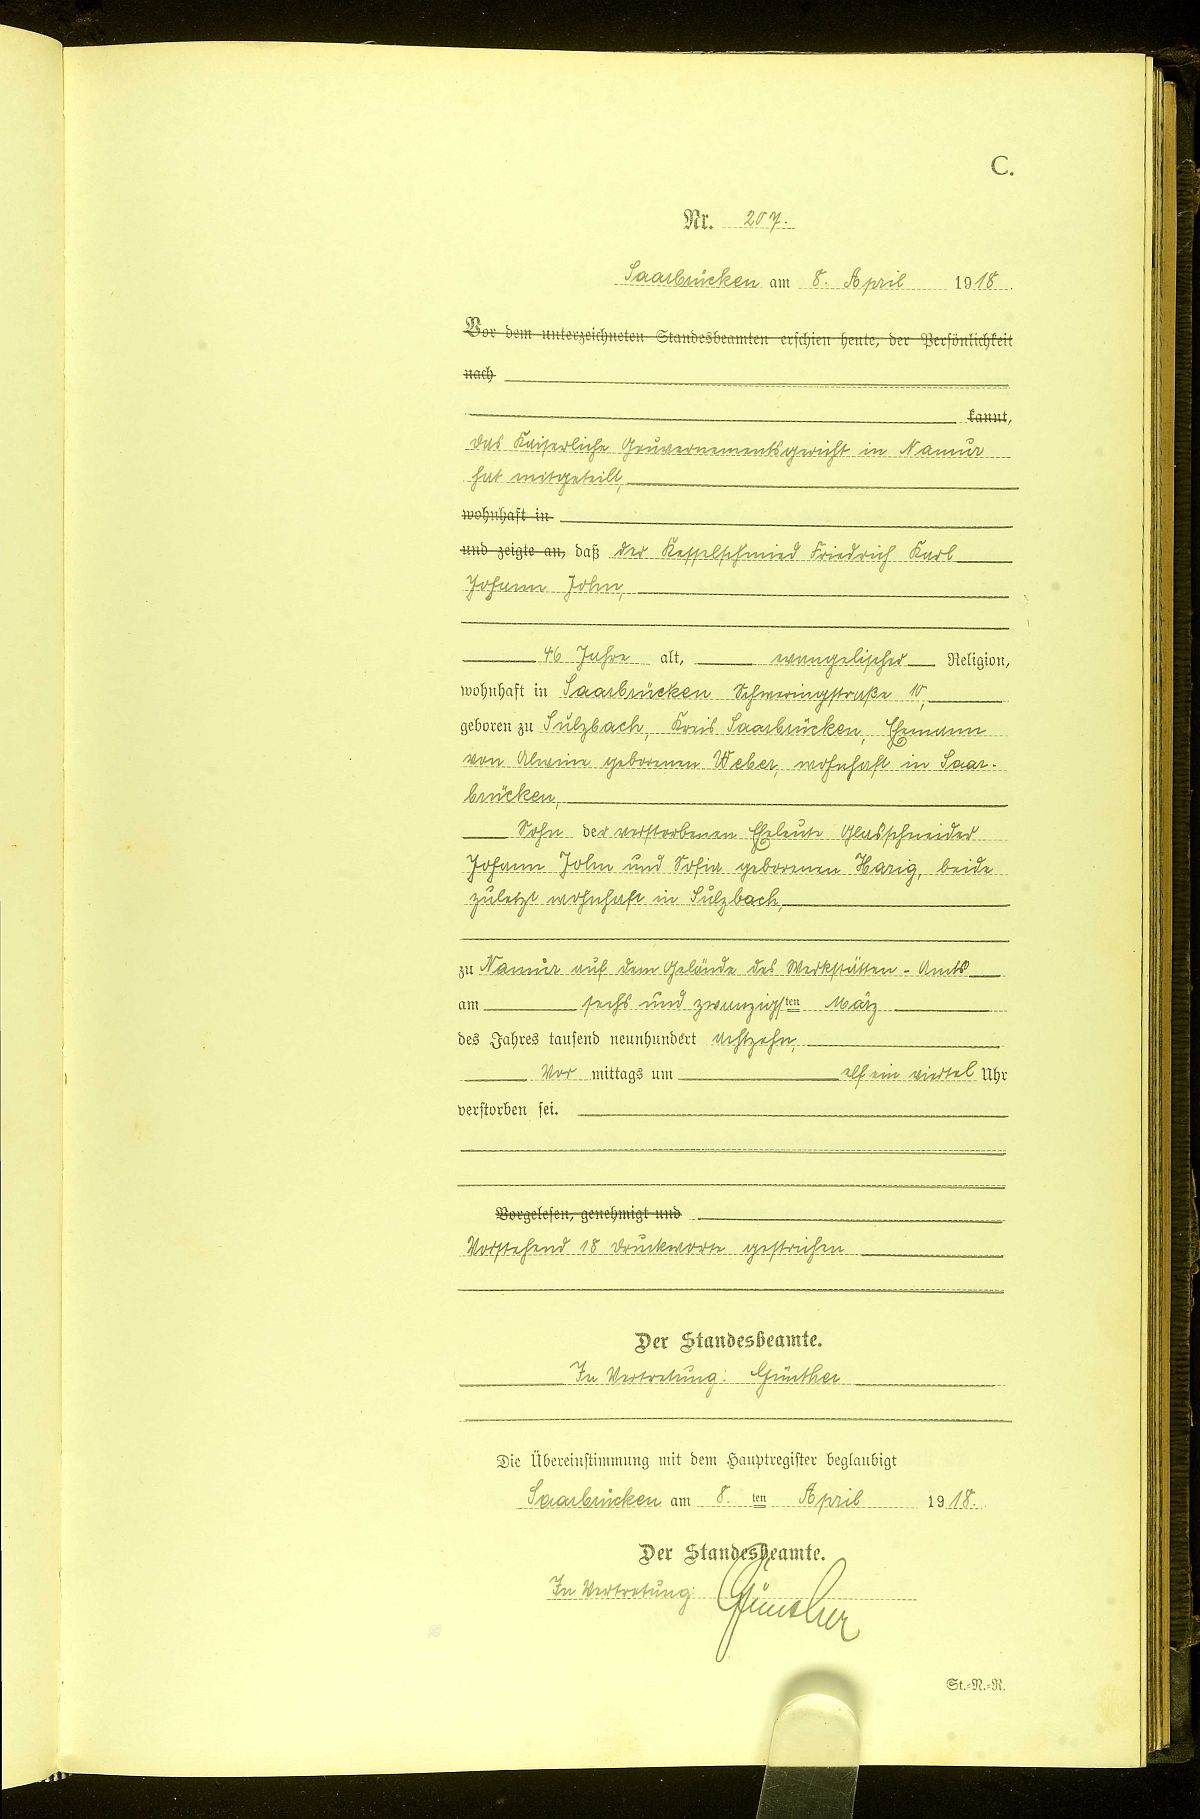 C.
Nr. 207.
Saarbrücken am 8. April 1918
Vor dem unterzeichneten Standesbeamten erschien heute, der Persönlichkeit
nach
kannt,
das Kaiserliche Gouvernementsgericht in Namur
hat mitgeteilt,
wohnhaft in
und zeigte an, daß der Kesselschmied Friedrich Karl
Johann John,
46 Jahre alt, evangelischer Religion,
wohnhaft in Saarbrücken Schweringstraße 10,
geboren zu Sulzbach, Kreis Saarbrücken, Ehemann
von Alwine geborenen Weber, wohnhaft in Saar-
brücken,
Sohn der verstorbenen Eheleute Glasschneider
Johann John und Sofia geborenen Harig, beide
zuletzt wohnhaft in Sulzbach,
zu Namur auf dem Gelände des Werkstätten-Amts
am sechs und zwanzigsten März
des Jahres tausend neunhundert achtzehn,
Vor mittags um elf ein viertel Uhr
verstorben sei.
Vorgelesen, genehmigt und
Vorstehend 18 Druckworte gestrichen
Der Standesbeamte.
In Vertretung: Günther
Die Übereinstimmung mit dem Hauptregister beglaubigt
Saarbrücken am 8. ten April 1918.
Der Standesbeamte.
In Vertretung: Günther
St.-N.-R.